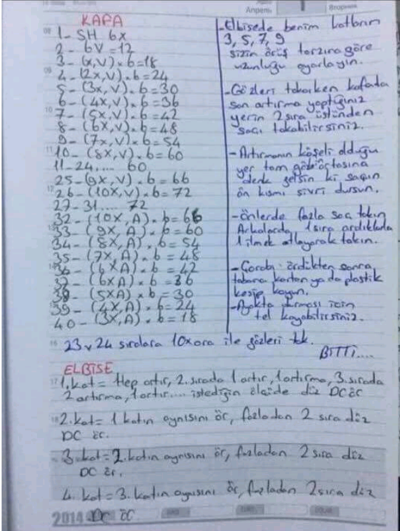 Апрель
Вторник
KAFA
1- SH 6x
2- 6V = 12
3- (x,V).6=18
4- (2x,V).6=24
5- (3x,V).6=30
6- (4x,V).6=36
7- (5x,V).6=42
8- (6x,V).6=48
9- (7x,V).6=54
10- (8x,V).6=60
11-24..... 60
25- (9x,V).6=66
26- (10x,V).6=72
27-31..... 72
32- (10x,A).6=66
33- (9x,A).6=60
34- (8x,A).6=54
35- (7x,A).6=48
36- (6xA).6=42
37- (6xA).6=36
38- (5xA).6=30
39- (4x,A).6=24
40- (3x,A).6=18
23 v 24 sıralara 10x ara ile gözleri tak.
- Elbisede benim katların
3, 5, 7, 9
sizin örüş tarzına göre
uzunluğu ayarlayın.
- Gözleri takarken kafada
son artırma yaptığınız
yerin 2 sıra üstünden
saçı takabilirsiniz.
- Artırmanın köşeli olduğu
yer tam göz ortasına
gelsin ki saçın
ön kısmı sivri dursun.
- Önlerde fazla saç takın
Arkalarda 1 sıra ardıkları
1 ilmek atlayarak takın.
- ördükten sonra
tabana karton ya da plastik
kesip koyun.
- Ayakta durması için
tel koyabilirsiniz.
BİTTİ....
ELBİSE
1. kat = Hep artır, 2. sırada 1 artır, 1 artırma, 3. sırada
2 artırma, 1 artır.... istediğin ölçüde düz DC ör
2. kat = 1 katın aynısını ör, fazladan 2 sıra düz
DC ör.
3. kat = 2. katın aynısını ör, fazladan 2 sıra düz
DC ör.
4. kat = 3. katın aynısını ör, fazladan 2 sıra düz
2014 DC ör